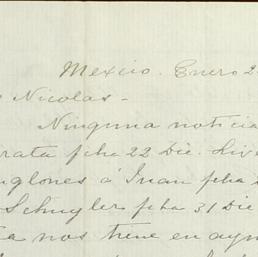 Mexico. Enero 2
Nicolas -
Ninguna noticia
rata fcha 22 Dic. Live
nglones á Juan fcha 2
Schuyler fcha 31 Dic
nos tiene en ayun